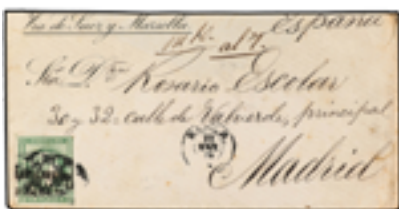 Via de Suez y Marsella España
Sra. Dña. Rosario Escobar
30 y 32 = calle de Valverde, principal
Madrid